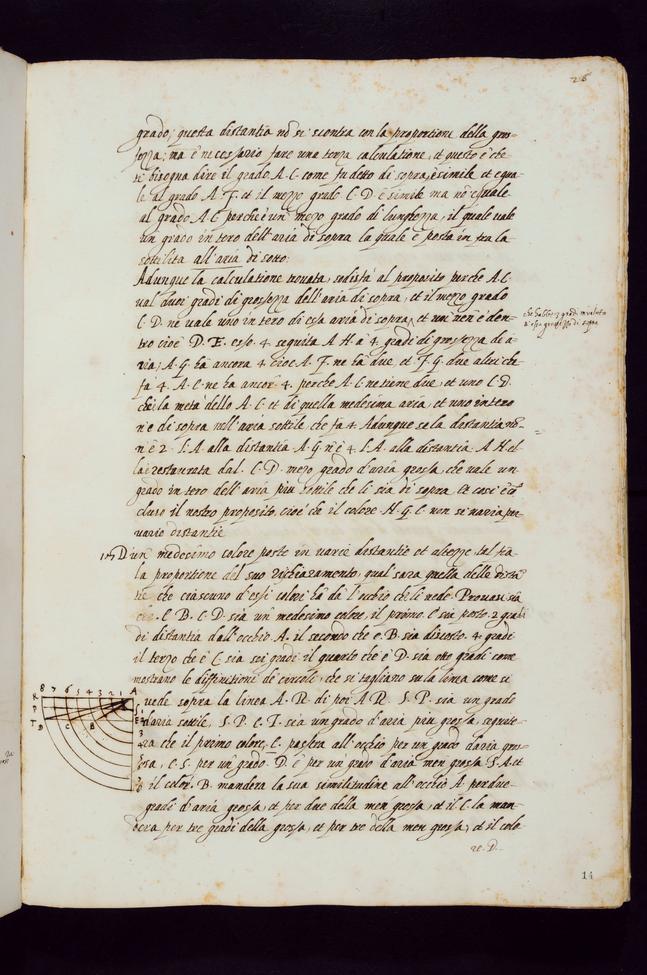 26
grado; questa distantia nō si scontra con la proportione della gros-
sezza; ma è necessario fare una terza calculatione, et questo è che
ti bisogna dire il grado A.C. come fu detto di sopra, è simile et equa-
le al grado A.F. et il mezzo grado C.D. è simile ma nō equale
al grado A.C. perche è un mezo grado di lunghezza, il quale vale
un grado intero dell'aria di sopra la quale è posta in fra la
sottilita all'aria di sotto:
Adunque la calculatione trovata, sodisfa al proposito perche A.C.
val duoi gradi di grossezza dell'aria di sopra, et il mezo grado
C.D. ne vale uno intero di essa aria di sopra, et un nen'è den-
tro cioè D.E. esso. 4. seguita A.H. à 4. gradi di grossezza di a-
ria; A.G. hà ancora 4. cioè A.F. ne hà due, et F.G. due altri che
fa 4. A.C. ne ha ancor 4. perche A.C. ne tiene due, et uno C.D.
che è la metà dello A.C. et di quella medesima aria, et uno intero
n'è di sopra nell'aria sottile che fa 4. Adunque se la distantia nō
n'è 2. S.A. alla distantia A.G. n'è 4. S.A. alla distantia A.H. et
la è restaurata dal C.D. mezo grado d'aria grossa, che vale un
grado intero dell'aria piu sottile che li sta di sopra. Et cosi è cō
cluso il nostro proposito cioè che il colore H.G.C. non si varia per
varie distantie.
D'un medesimo colore posto in varie distantie et altezze tal fia
la proportione del suo rischiaramento, qual sara quella delle distā
tie che ciascuno d'essi colori hà da l'occhio che li vede. Provasi sia
che. E.B.C.D. sia un medesimo colore, il primo. E sia posto 2 gradi
di distantia dall'occhio A. il secondo che e. B. sia discosto. 4. gradi
il terzo che è C. sia sei gradi il quarto che è D. sia otto gradi come
mostrano le diffinitioni de circoli, che si tagliano su la linea come si
vede sopra la linea A.R. di poi A R. S.P. sia un grado
d'aria sottile. S.P. E.T. sia un grado d'aria piu grossa, seguite-
ra che il primo colore, E. passera all'occhio per un grado d'aria gros-
sa, E.S. per un grado
il color. B. mandera la sua similitudine all'occhio A. per duo
gradi d'aria grossa, et per due della men grossa, et il C. la man-
dera per tre gradi della grossa, et per tre della men grossa, et il colo
re. D.
8 7 6 5 4 3 2 1 A
R
P
T
D C B
14